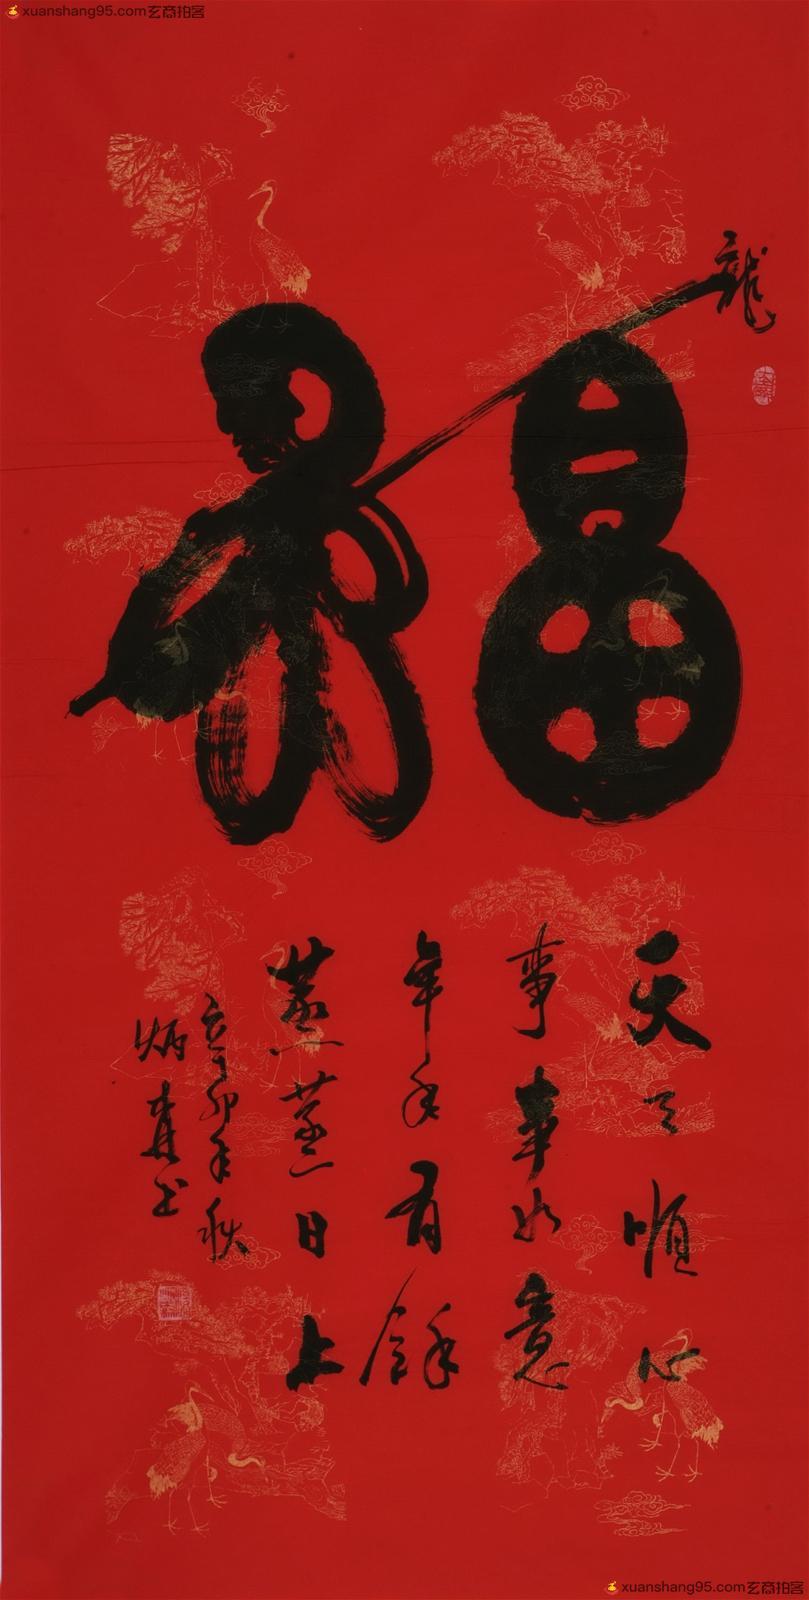 xuanshang95.com玄商拍客
龍
福
天天順心
事事如意
年年有餘
蒸蒸日上
辛卯年秋
炳森书
xuanshang95.com玄商拍客